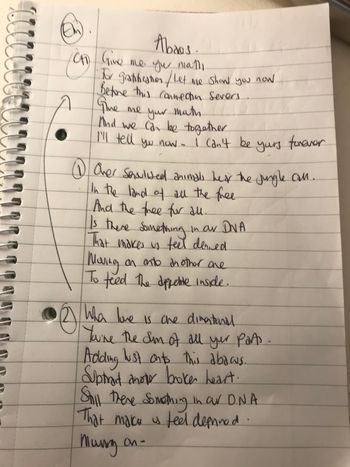 Em
Abacus.
CH Give me your maths
For gratification / Let me show you now
before this connection severs.
Give me your math
And we can be together
I'll tell you now - I can't be yours forever
1 Over sexualised animals hear the jungle call.
In the land of all the free
And the free for all.
Is there something in our DNA
That makes us feel
Moving on onto another one
To feed the appetite inside.
2 When love is one dimensional
You're the sum of all your parts.
Adding lust onto this abacus.
Subtract another broken heart.
Still there something in our DNA
That makes us feel deprived.
Moving on -